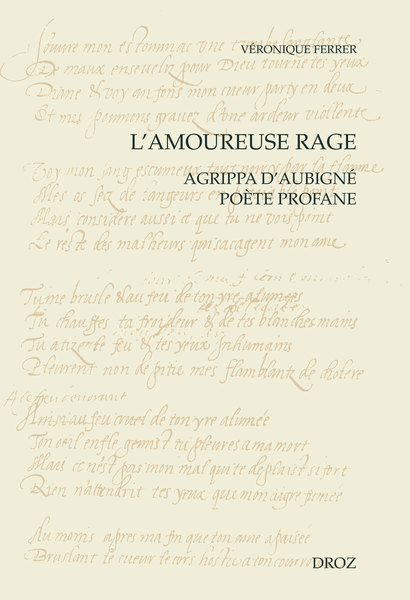 VÉRONIQUE FERRER
Jouvre mon estommac une tumbe sanglante
De maux enseveliz pour Dieu tourne tes yeux
Diane & voy au fons mon cueur party en deux
Et mes poumons gravez d'une ardeur viollente
L'AMOUREUSE RAGE
Voy mon sang escumeux tout noircy par la flamme
AGRIPPA D'AUBIGNÉ
Mes os secz de langeurs en pitoiable point
POÈTE PROFANE
Mais considere aussi ce que tu ne vois point
Le reste des malheurs qui sacagent mon ame
Tu me brusle & au feu de ton yre alumee
Tu chauffes ta froideur & de tes blanches mains
Tu atize le feu & tes yeux Inhumains
Pleurent non de pitié mes flamblantz de cholere
A ce feu devorant
Ainsi au feu cruel de ton yre alumée
Ton oeil enflé gemist tu pleures a ma mort
Mais ce n'est pas mon mal qui te deplaist si fort
Rien n'attendrit tes yeux que mon aigre fumee
Au moins apres ma fin que ton ame apaisée
Bruslant le cueur le cors hostie a ton courro
DROZ